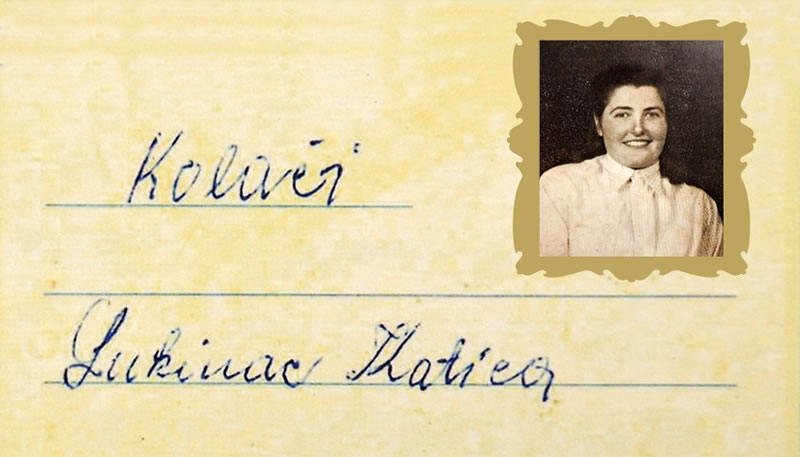 Kolači
Lukinac Katica